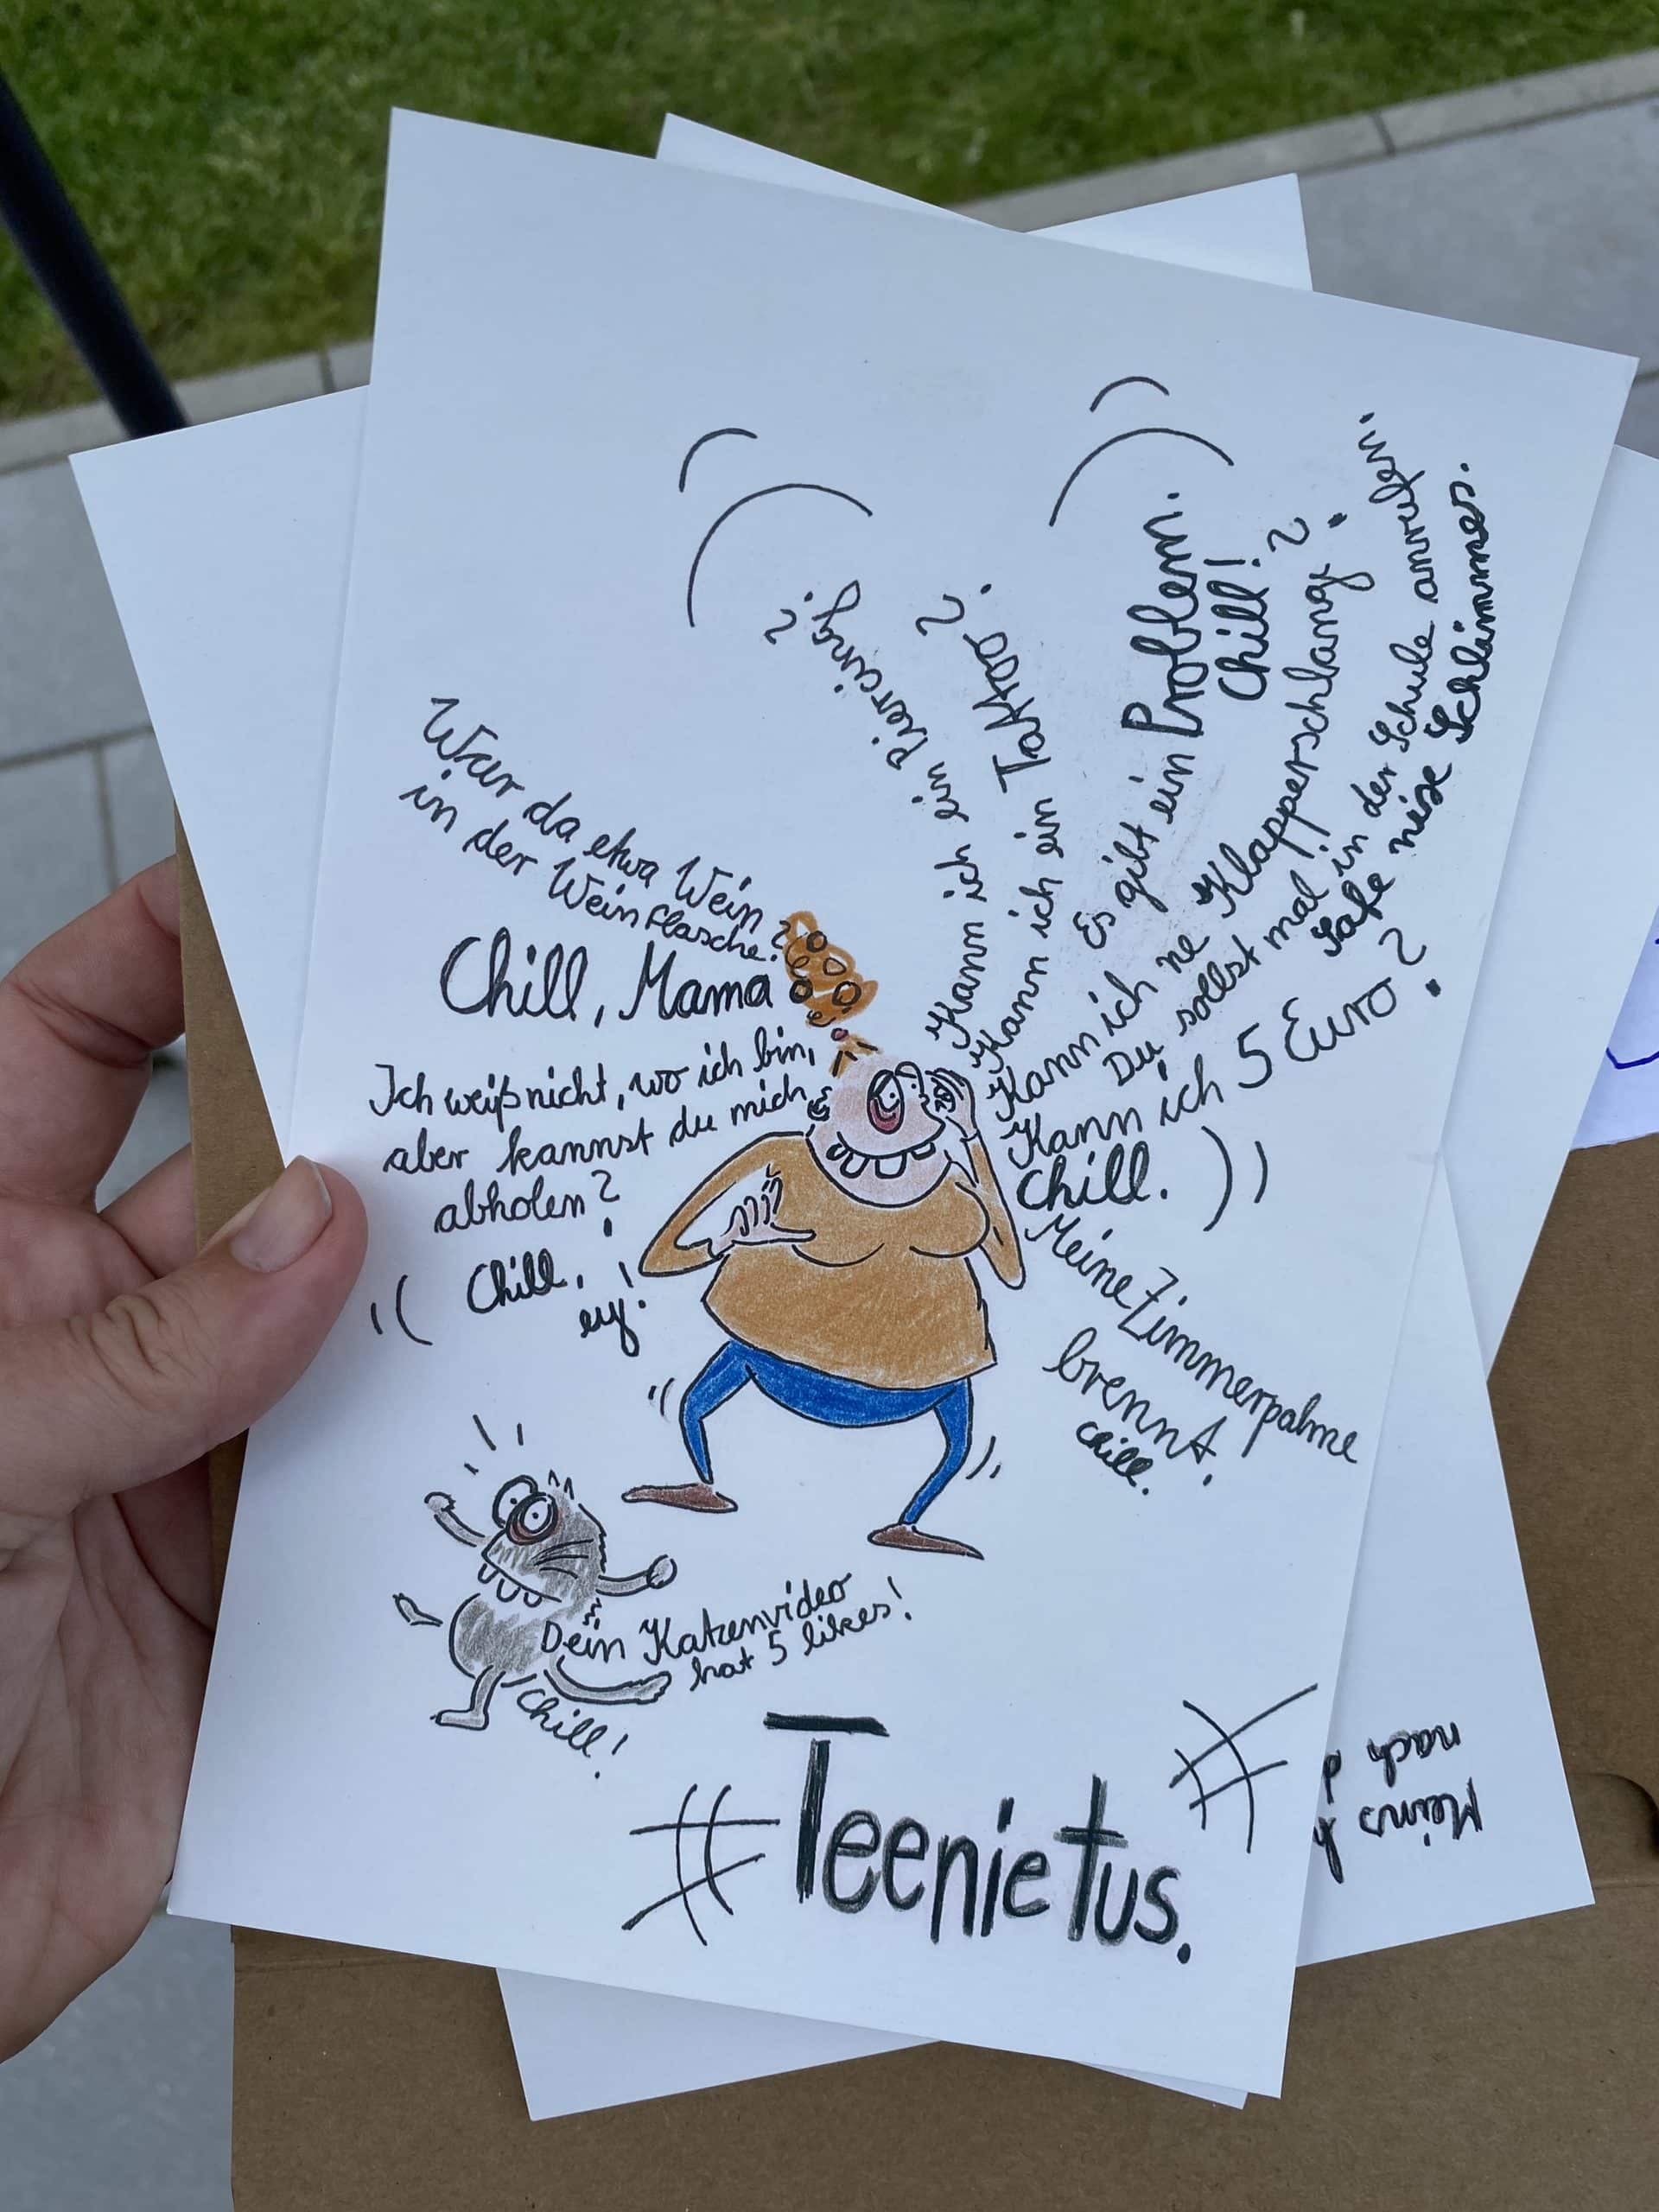 War da etwa Wein
in der Weinflasche?
Chill, Mama
Ich weiß nicht, wo ich bin,
aber kannst du mich
abholen?
Chill,
ey!
Kann ich ein Piercing?
Kann ich ein Tattoo?
Es gibt ein Problem.
Chill!
Kann ich ne Klapperschlange?
Du sollst mal in der Schule anrufen.
Safe nix Schlimmes.
Kann ich 5 Euro?
Chill.
Meine Zimmerpalme
brennt.
Chill.
Dein Katzenvideo
hat 5 likes!
Chill!
# Teenietus. #
Meins
nach